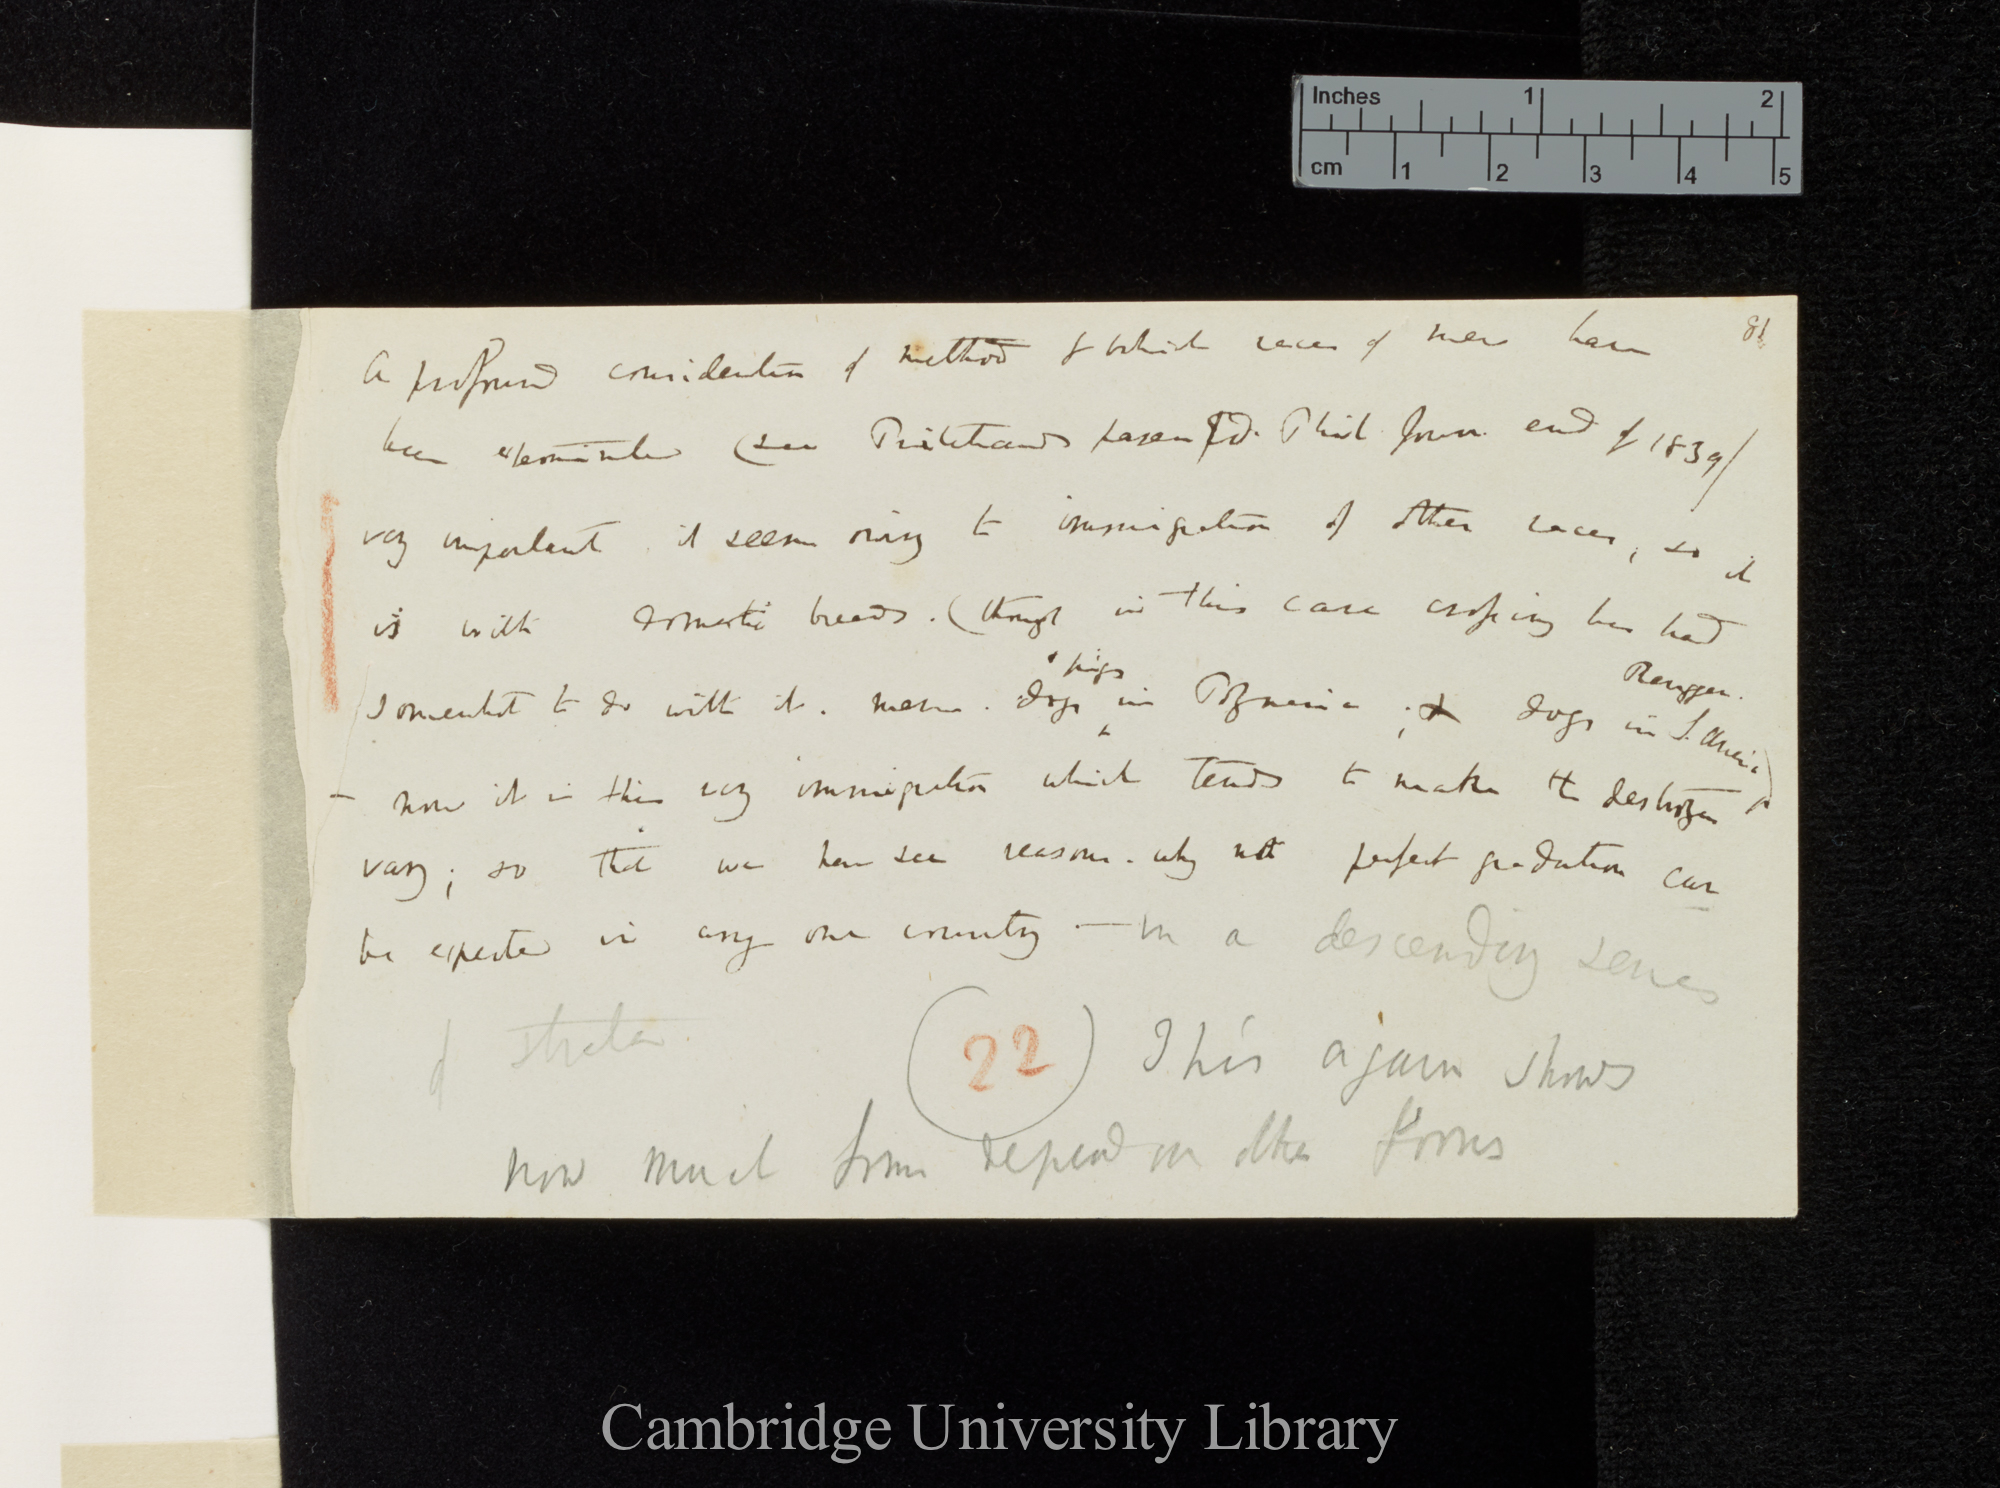 Inches 1 2
cm 1 2 3 4 5
81
A profound consideration of method by which races of men have
been exterminated (see Pritchard's paper Ed. Phil Journ. end of 1839/
very important it seems owing to immigration of other races, so it
is with domestic breeds. (though in this case crossing has had
& pigs Rengger.
somewhat to do with it. mem. dogs in Polynesia; & dogs in S. America)
— now it is this very immigration which tends to make the destroyer
vary; so that we have seen reasons why not perfect gradation can
be expected in any one country — in a descending series
of strata.
(22) This again shows
how much form depend on other forms
Cambridge University Library